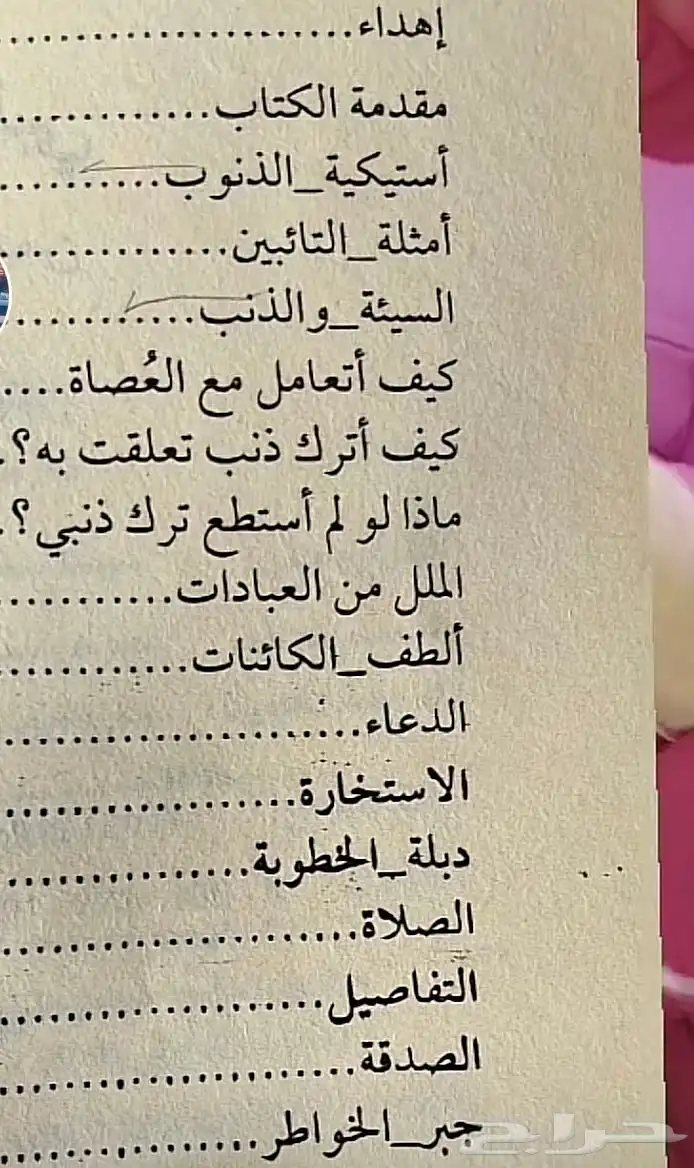 إهداء......................
مقدمة الكتاب.............
أستيكية_الذنوب..........
أمثلة_التائبين..............
السيئة_والذنب............
كيف أتعامل مع العُصاة....
كيف أترك ذنب تعلقت به؟.
ماذا لو لم أستطع ترك ذنبي؟.
الملل من العبادات...........
ألطف_الكائنات............
الدعاء......................
الاستخارة..................
دبلة_الخطوبة...............
الصلاة......................
التفاصيل....................
الصدقة......................
جبر_الخواطر................
حراج